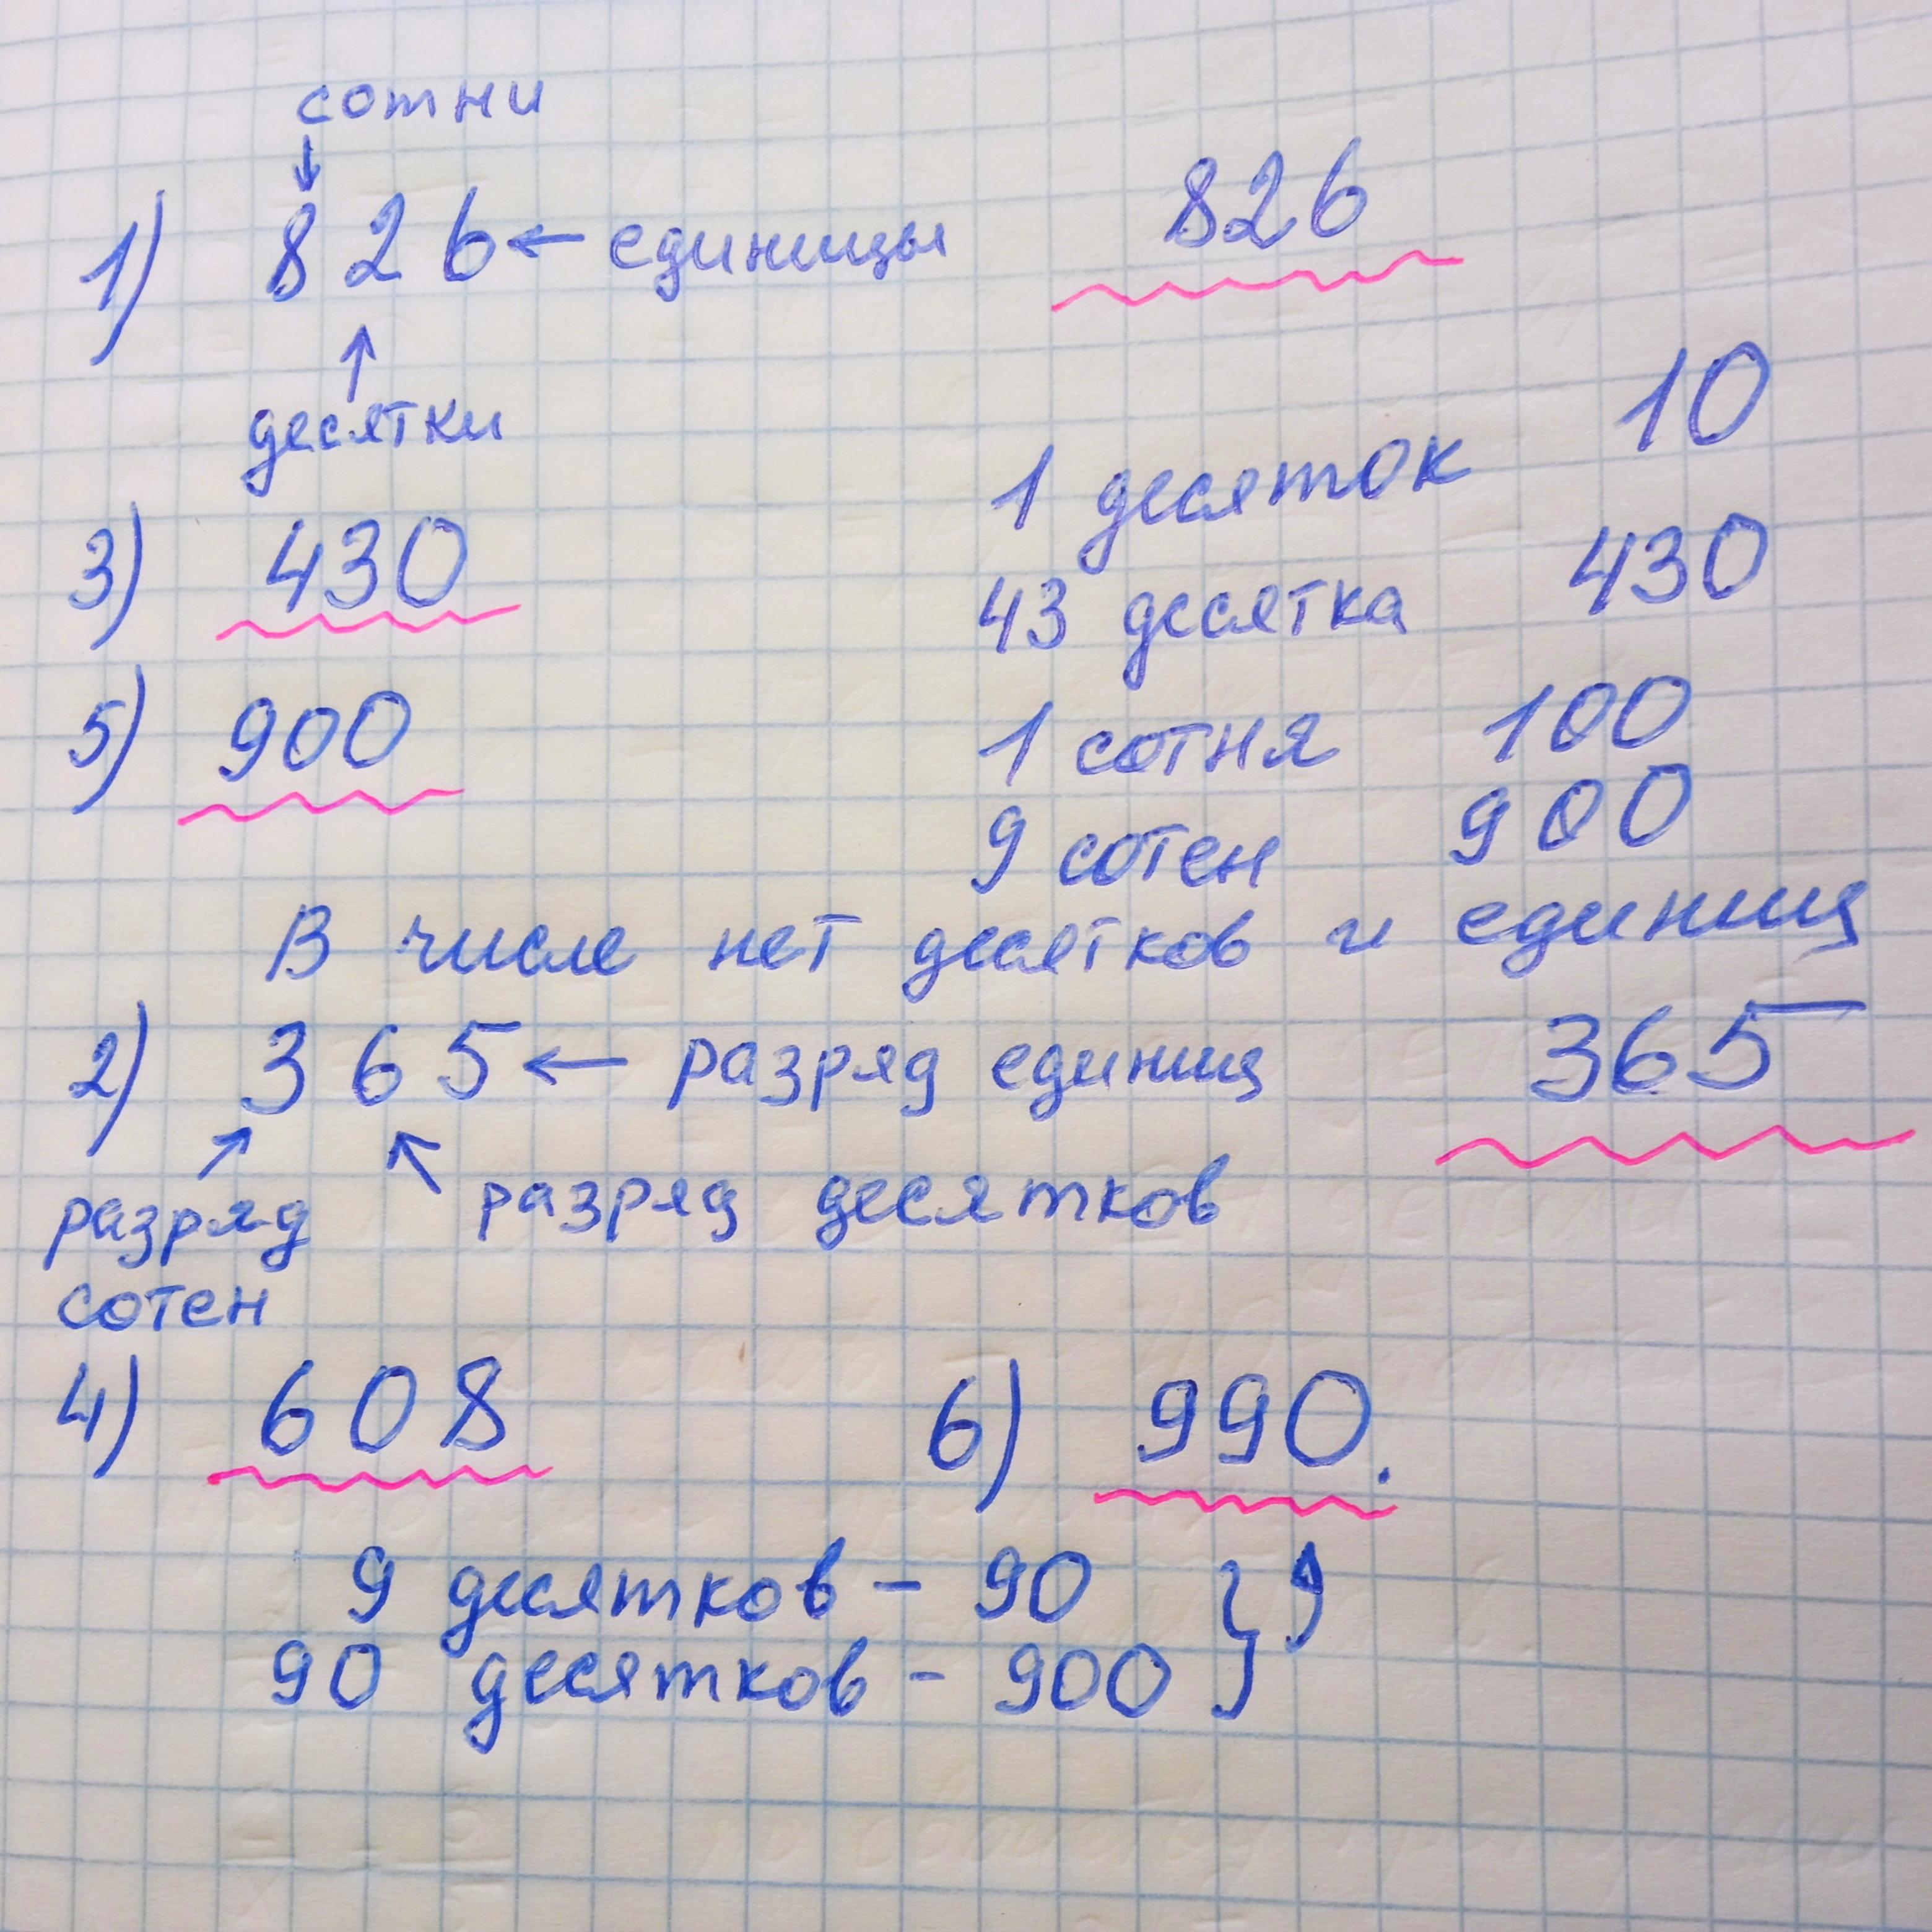 сотни
1) 8 2 6 ← единицы 826
десятки
1 десяток 10
3) 430
43 десятка 430
5) 900
1 сотня 100
9 сотен 900
В числе нет десятков и единиц
2) 3 6 5 ← разряд единиц 365
разряд десятков
разряд
сотен
4) 608 6) 990.
9 десятков - 90
90 десятков - 900